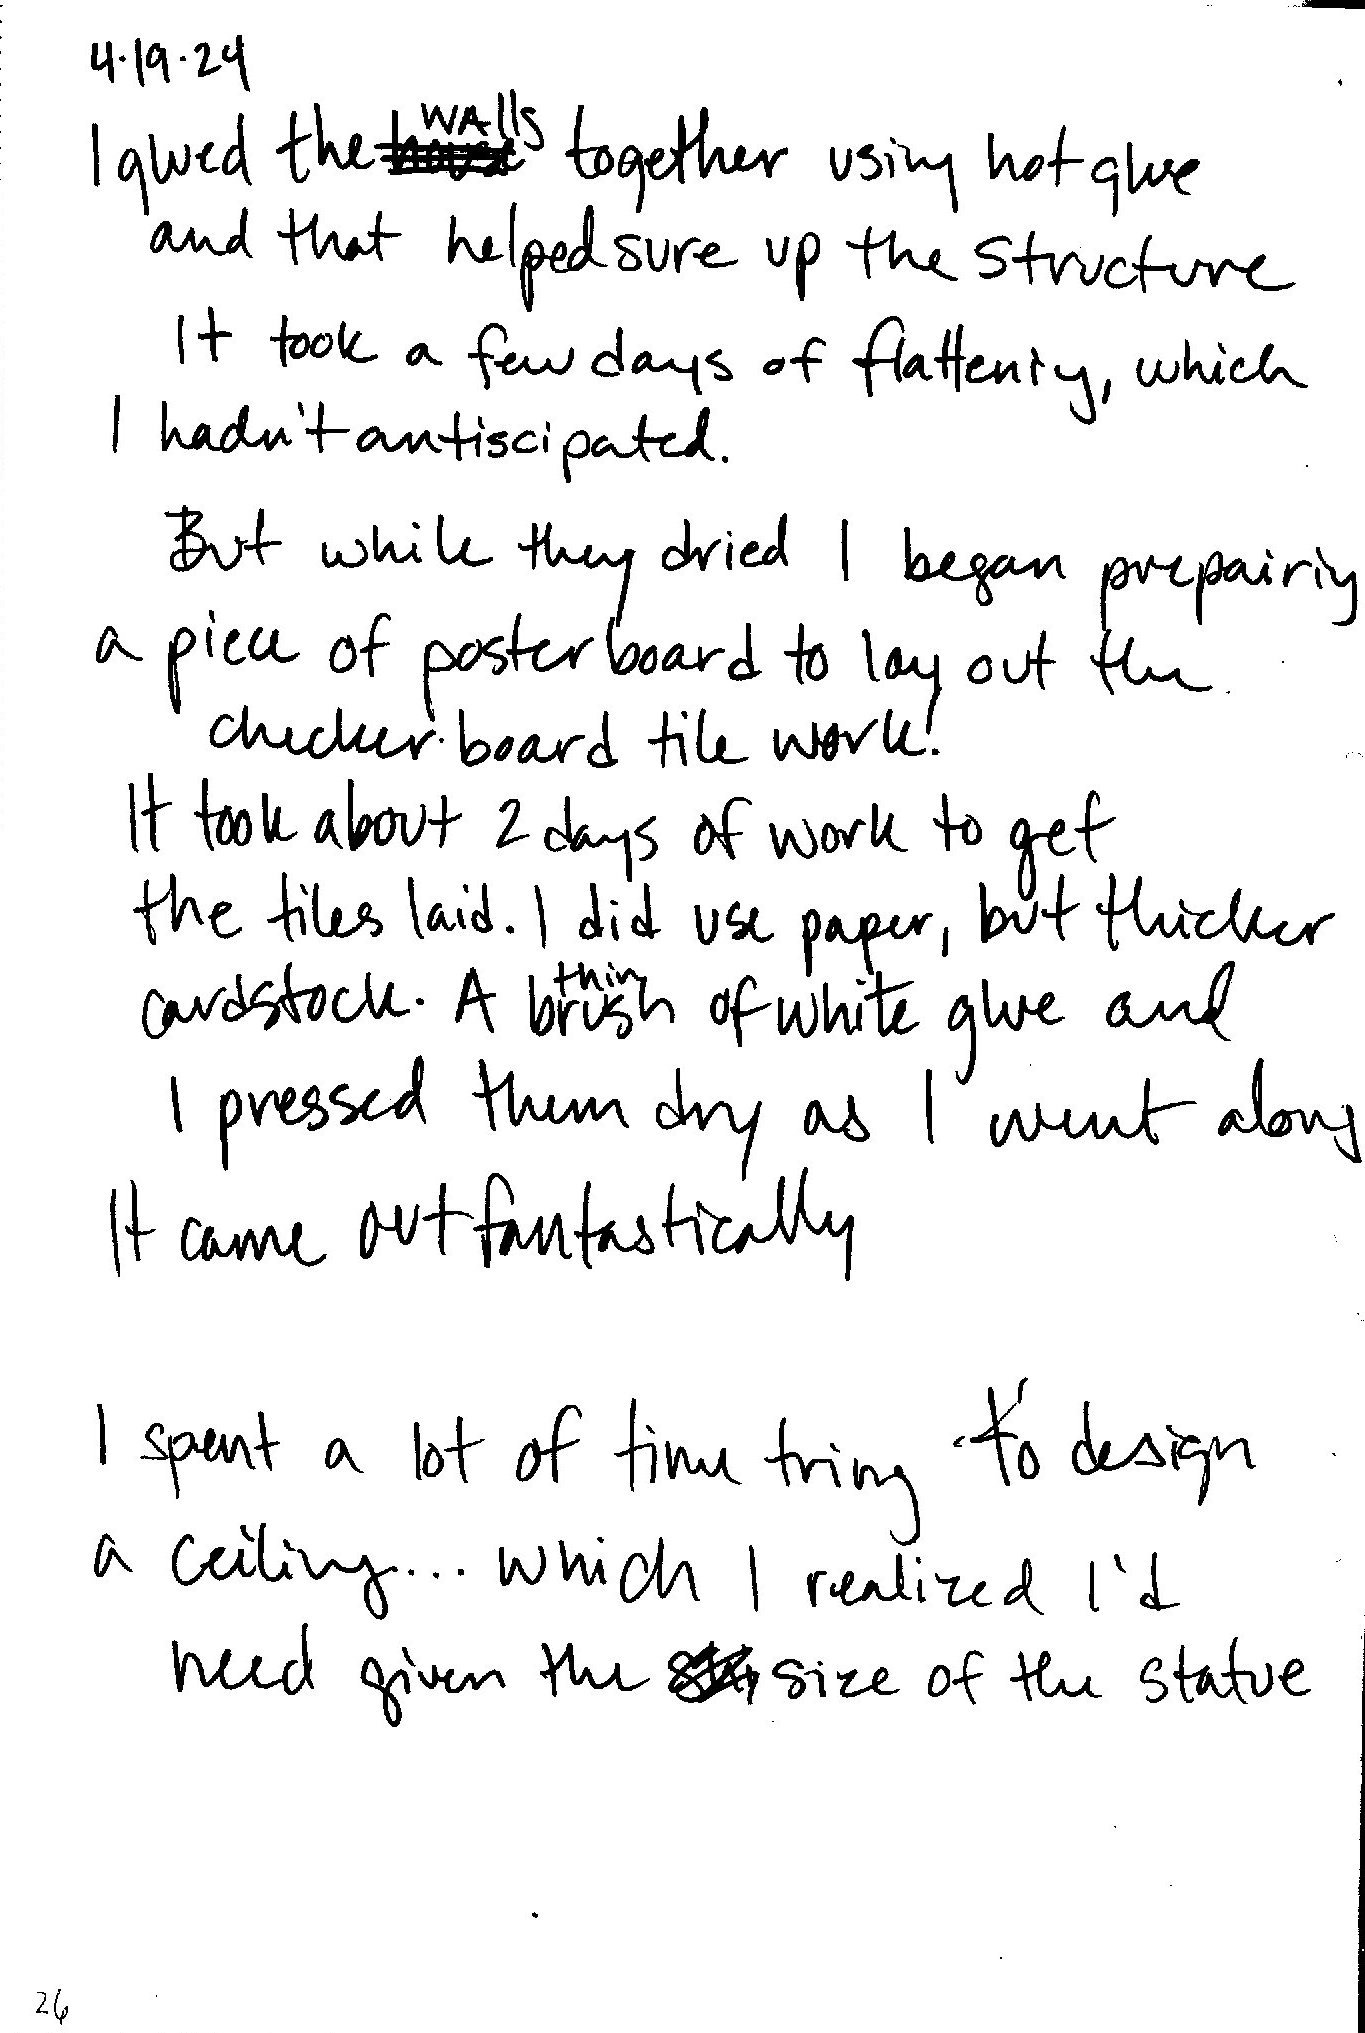 4.19.24
I glued the house walls together using hot glue
and that helped sure up the structure
It took a few days of flattening, which
I hadn't antiscipated.
But while they dried I began prepairing
a piece of poster board to lay out the
checker board tile work!
It took about 2 days of work to get
the tiles laid. I did use paper, but thicker
cardstock. A thin brush of white glue and
I pressed them dry as I went along
It came out fantastically
I spent a lot of time tring to design
a ceiling... which I realized I'd
need given the size of the statue
26